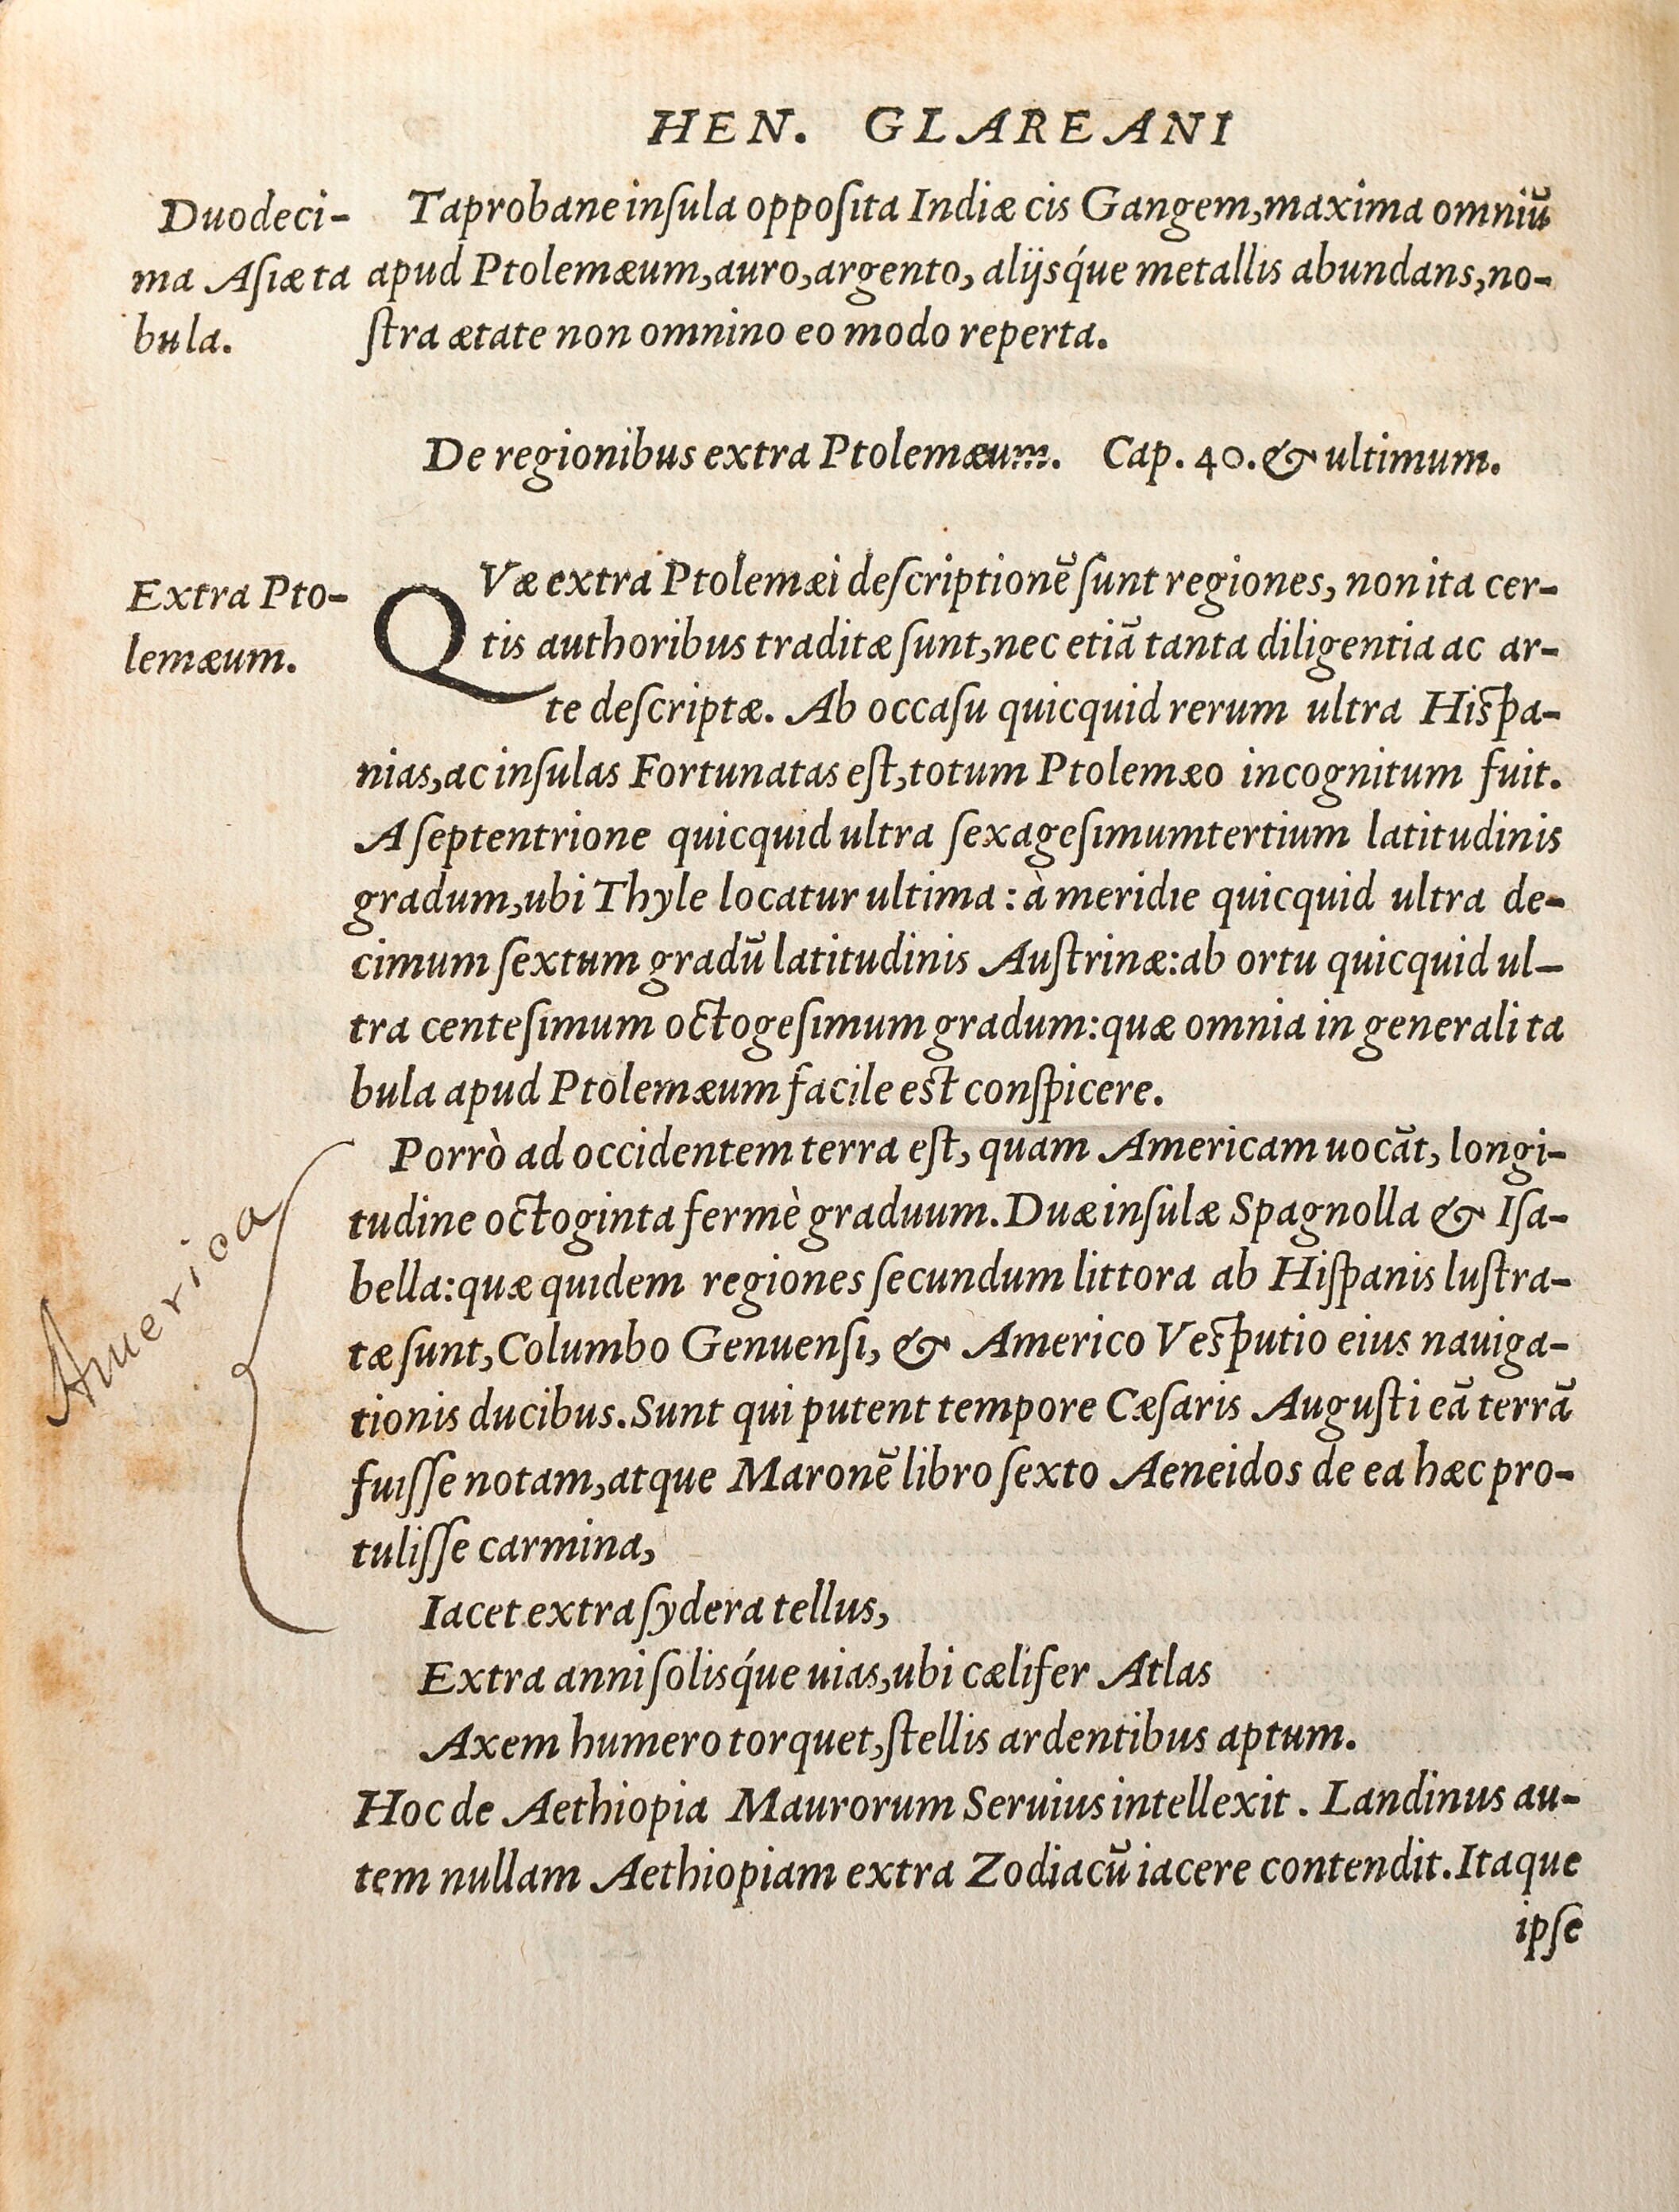 HEN. GLAREANI
Duodeci-
ma Aſiæ ta
bula.
Taprobane inſula oppoſita Indiæ cis Gangem, maxima omniū
apud Ptolemæum, auro, argento, alijsq́ue metallis abundans, no-
ſtra ætate non omnino eo modo reperta.
De regionibus extra Ptolemæum. Cap. 40. & ultimum.
Extra Pto-
lemæum.
QVæ extra Ptolemæi deſcriptionē ſunt regiones, non ita cer-
tis authoribus traditæ ſunt, nec etiā tanta diligentia ac ar-
te deſcriptæ. Ab occaſu quicquid rerum ultra Hiſpa-
nias, ac inſulas Fortunatas eſt, totum Ptolemæo incognitum fuit.
A ſeptentrione quicquid ultra ſexageſimumtertium latitudinis
gradum, ubi Thyle locatur ultima: à meridie quicquid ultra de-
cimum ſextum gradū latitudinis Auſtrinæ: ab ortu quicquid ul-
tra centeſimum octogeſimum gradum: quæ omnia in generali ta
bula apud Ptolemæum facile eſt conſpicere.
Porrò ad occidentem terra eſt, quam Americam uocāt, longi-
tudine octoginta fermè graduum. Duæ inſulæ Spagnolla & Iſa-
bella: quæ quidem regiones ſecundum littora ab Hiſpanis luſtra-
tæ ſunt, Columbo Genuenſi, & Americo Veſputio eius nauiga-
tionis ducibus. Sunt qui putent tempore Cæſaris Auguſti eā terrā
fuiſſe notam, atque Maronē libro ſexto Aeneidos de ea hæc pro-
tuliſſe carmina,
America
Iacet extra ſydera tellus,
Extra anni ſolisq́ue uias, ubi cælifer Atlas
Axem humero torquet, ſtellis ardentibus aptum.
Hoc de Aethiopia Maurorum Seruius intellexit. Landinus au-
tem nullam Aethiopiam extra Zodiacū iacere contendit. Itaque
ipſe